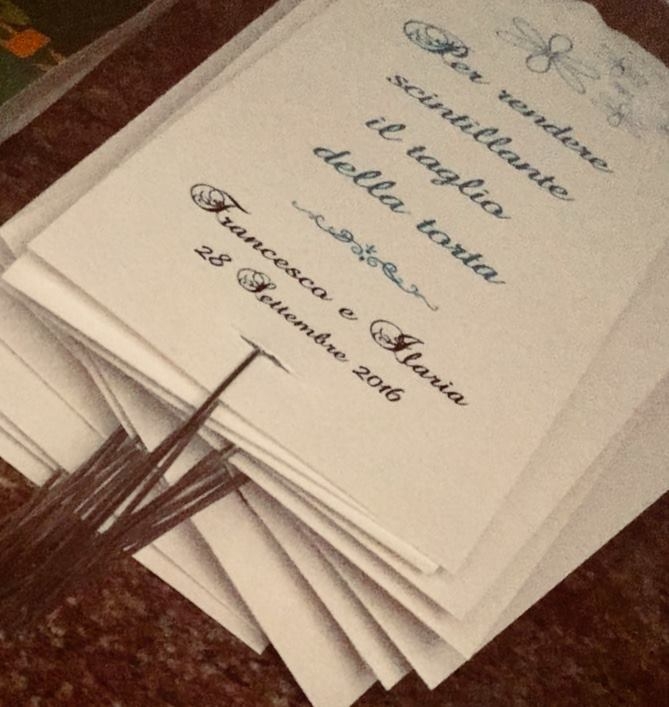 Per rendere
scintillante
il taglio
della torta
Francesco e Ilaria
28 Settembre 2016